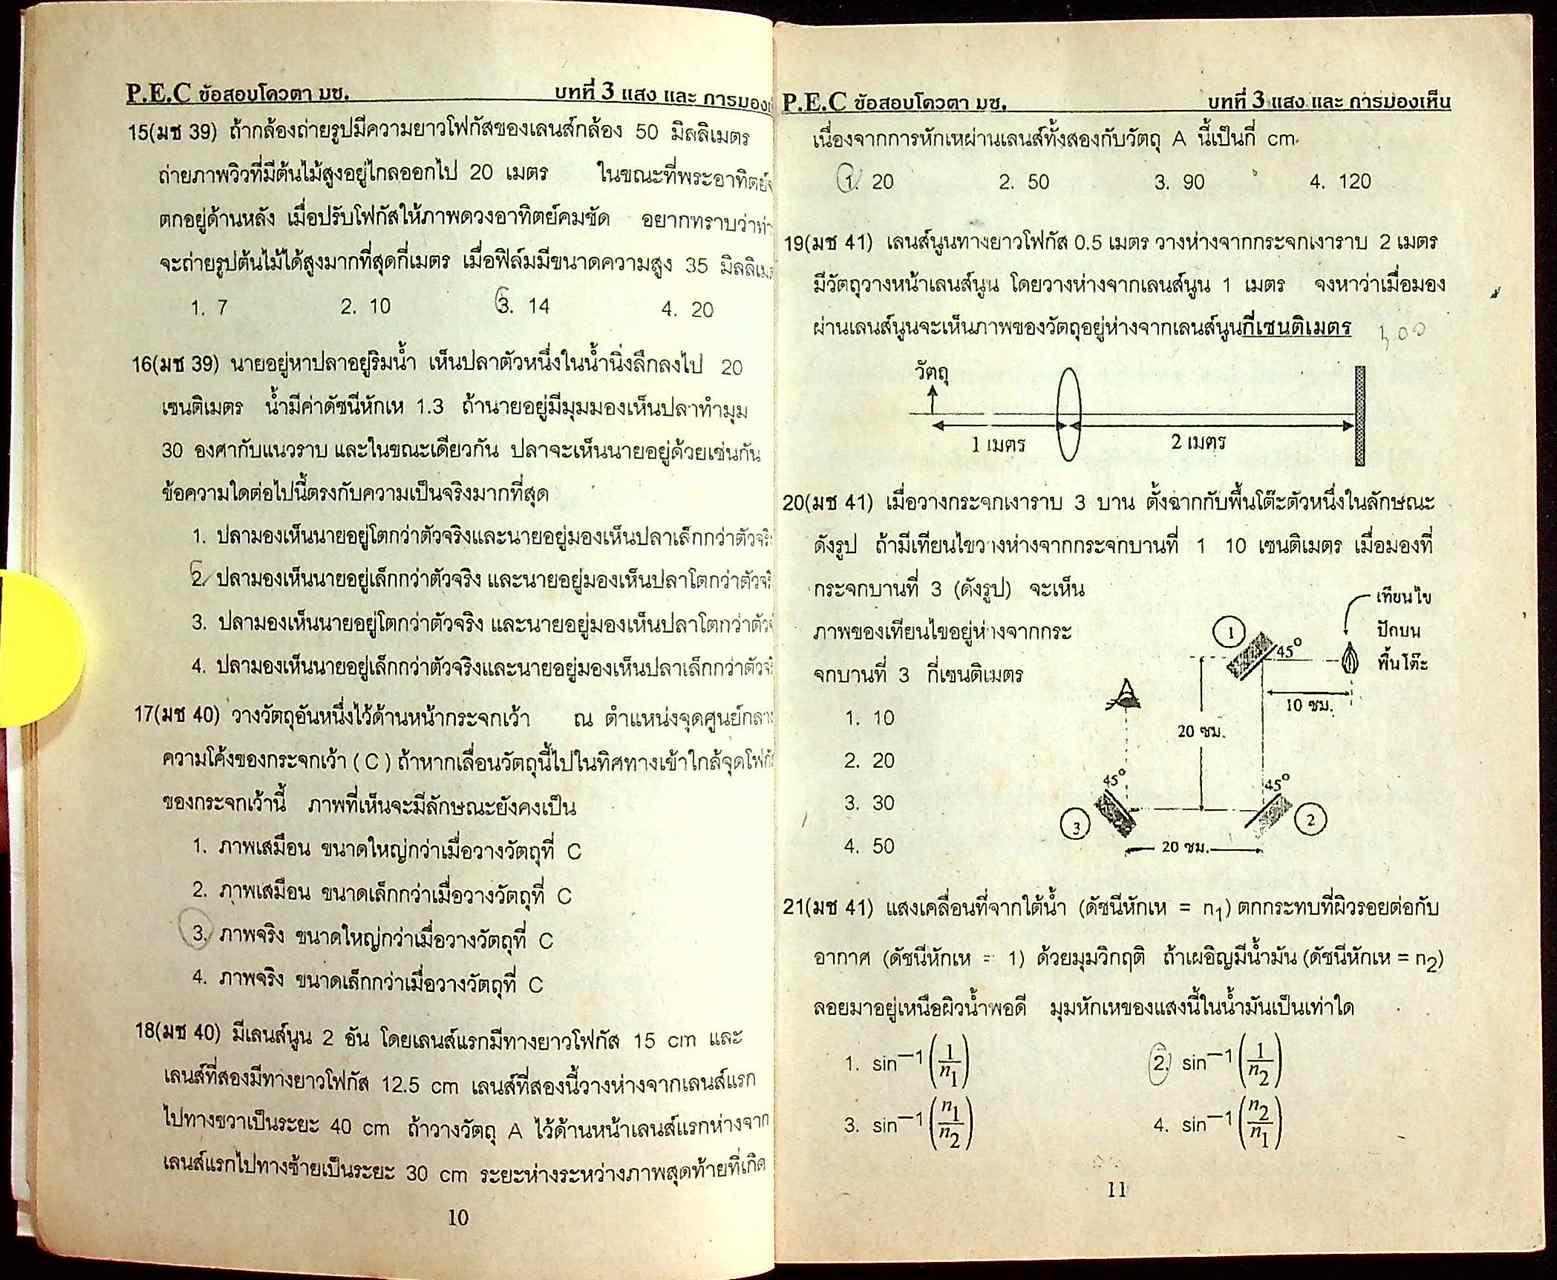 P.E.C ข้อสอบโควตา มช. บทที่ 3 แสง และ การมองเ
15(มช 39) ถ้ากล้องถ่ายรูปมีความยาวโฟกัสของเลนส์กล้อง 50 มิลลิเมตร
ถ่ายภาพวิวที่มีต้นไม้สูงอยู่ไกลออกไป 20 เมตร ในขณะที่พระอาทิตย์
ตกอยู่ด้านหลัง เมื่อปรับโฟกัสให้ภาพดวงอาทิตย์คมชัด อยากทราบว่า
จะถ่ายรูปต้นไม้ได้สูงมากที่สุดกี่เมตร เมื่อฟิล์มมีขนาดความสูง 35 มิลลิเม
1. 7 2. 10 3. 14 4. 20
16(มช 39) นายอยู่หาปลาอยู่ริมน้ำ เห็นปลาตัวหนึ่งในน้ำนิ่งลึกลงไป 20
เซนติเมตร น้ำมีค่าดัชนีหักเห 1.3 ถ้านายอยู่มีมุมมองเห็นปลาทำมุม
30 องศากับแนวราบ และในขณะเดียวกัน ปลาจะเห็นนายอยู่ด้วยเช่นกัน
ข้อความใดต่อไปนี้ตรงกับความเป็นจริงมากที่สุด
1. ปลามองเห็นนายอยู่โตกว่าตัวจริงและนายอยู่มองเห็นปลาเล็กกว่าตัวจริ
2. ปลามองเห็นนายอยู่เล็กกว่าตัวจริง และนายอยู่มองเห็นปลาโตกว่าตัวจริ
3. ปลามองเห็นนายอยู่โตกว่าตัวจริง และนายอยู่มองเห็นปลาโตกว่าตัวจ
4. ปลามองเห็นนายอยู่เล็กกว่าตัวจริงและนายอยู่มองเห็นปลาเล็กกว่าตัวจริ
17(มช 40) วางวัตถุอันหนึ่งไว้ด้านหน้ากระจกเว้า ณ ตำแหน่งจุดศูนย์กลา
ความโค้งของกระจกเว้า ( C ) ถ้าหากเลื่อนวัตถุนี้ไปในทิศทางเข้าใกล้จุดโฟกั
ของกระจกเว้านี้ ภาพที่เห็นจะมีลักษณะยังคงเป็น
1. ภาพเสมือน ขนาดใหญ่กว่าเมื่อวางวัตถุที่ C
2. ภาพเสมือน ขนาดเล็กกว่าเมื่อวางวัตถุที่ C
3. ภาพจริง ขนาดใหญ่กว่าเมื่อวางวัตถุที่ C
4. ภาพจริง ขนาดเล็กกว่าเมื่อวางวัตถุที่ C
18(มช 40) มีเลนส์นูน 2 อัน โดยเลนส์แรกมีทางยาวโฟกัส 15 cm และ
เลนส์ที่สองมีทางยาวโฟกัส 12.5 cm เลนส์ที่สองนี้วางห่างจากเลนส์แรก
ไปทางขวาเป็นระยะ 40 cm ถ้าวางวัตถุ A ไว้ด้านหน้าเลนส์แรกห่างจาก
เลนส์แรกไปทางซ้ายเป็นระยะ 30 cm ระยะห่างระหว่างภาพสุดท้ายที่เกิด
10
P.E.C ข้อสอบโควตา มช. บทที่ 3 แสง และ การมองเห็น
เนื่องจากการหักเหผ่านเลนส์ทั้งสองกับวัตถุ A นี้เป็นกี่ cm.
1. 20 2. 50 3. 90 4. 120
19(มช 41) เลนส์นูนทางยาวโฟกัส 0.5 เมตร วางห่างจากกระจกเงาราบ 2 เมตร
มีวัตถุวางหน้าเลนส์นูน โดยวางห่างจากเลนส์นูน 1 เมตร จงหาว่าเมื่อมอง
ผ่านเลนส์นูนจะเห็นภาพของวัตถุอยู่ห่างจากเลนส์นูนกี่เซนติเมตร
วัตถุ
1 เมตร 2 เมตร
20(มช 41) เมื่อวางกระจกเงาราบ 3 บาน ตั้งฉากกับพื้นโต๊ะตัวหนึ่งในลักษณะ
ดังรูป ถ้ามีเทียนไขวางห่างจากกระจกบานที่ 1 10 เซนติเมตร เมื่อมองที่
กระจกบานที่ 3 (ดังรูป) จะเห็น
ภาพของเทียนไขอยู่ห่างจากกระ
จกบานที่ 3 กี่เซนติเมตร
1. 10
2. 20
3. 30
4. 50
เทียนไข
ปักบน
พื้นโต๊ะ
1 45°
10 ซม.
20 ซม.
45° 45°
3 2
20 ซม.
21(มช 41) แสงเคลื่อนที่จากใต้น้ำ (ดัชนีหักเห = n₁) ตกกระทบที่ผิวรอยต่อกับ
อากาศ (ดัชนีหักเห = 1) ด้วยมุมวิกฤติ ถ้าเผอิญมีน้ำมัน (ดัชนีหักเห = n₂)
ลอยมาอยู่เหนือผิวน้ำพอดี มุมหักเหของแสงนี้ในน้ำมันเป็นเท่าใด
1. sin⁻¹(1/n₁) 2. sin⁻¹(1/n₂)
3. sin⁻¹(n₁/n₂) 4. sin⁻¹(n₂/n₁)
11